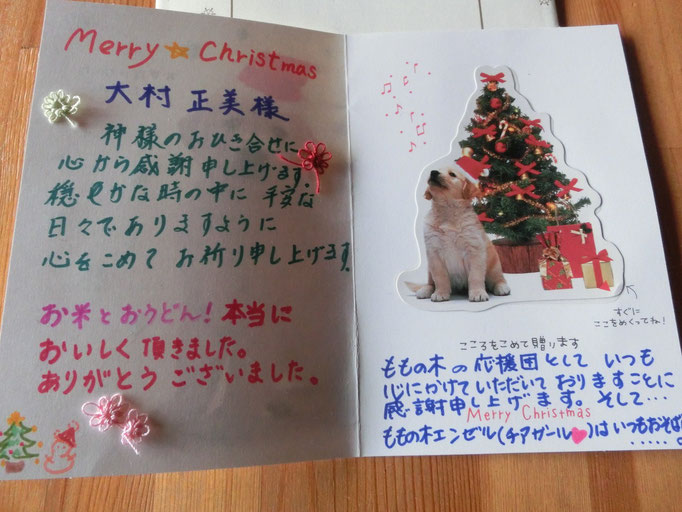 Merry Christmas
大村 正美様
神様のおひき合せに
心から感謝申し上げます。
穏やかな時の中に 平安な
日々でありますように
心をこめて お祈り申し上げます。
お米とおうどん!本当に
おいしく頂きました。
ありがとう ございました。
すぐに
ここをめくってね!
こころをこめて贈ります
ももの木の応援団として いつも
心にかけていただいて おりますことに
感謝申し上げます。そして…
Merry Christmas
ももの木エンゼル(チアガール♥)は いつもおそば